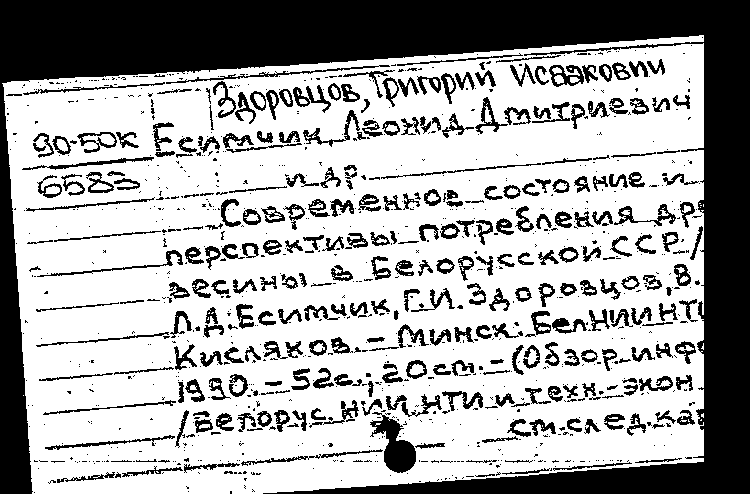 Здоровцов, Григорий Исаакович
90-50К Есимчик, Леонид Дмитриевич
6583 и др.
Современное состояние и
перспективы потребления дре
весины в Белорусской ССР /
Л.Д. Есимчик, Г.И. Здоровцов, В.
Кисляков. – Минск: БелНИИНТИ
1990. – 52с.; 20см. – (Обзор. инфо
/Белорус. НИИ НТИ и техн.-экон
см. след. кар